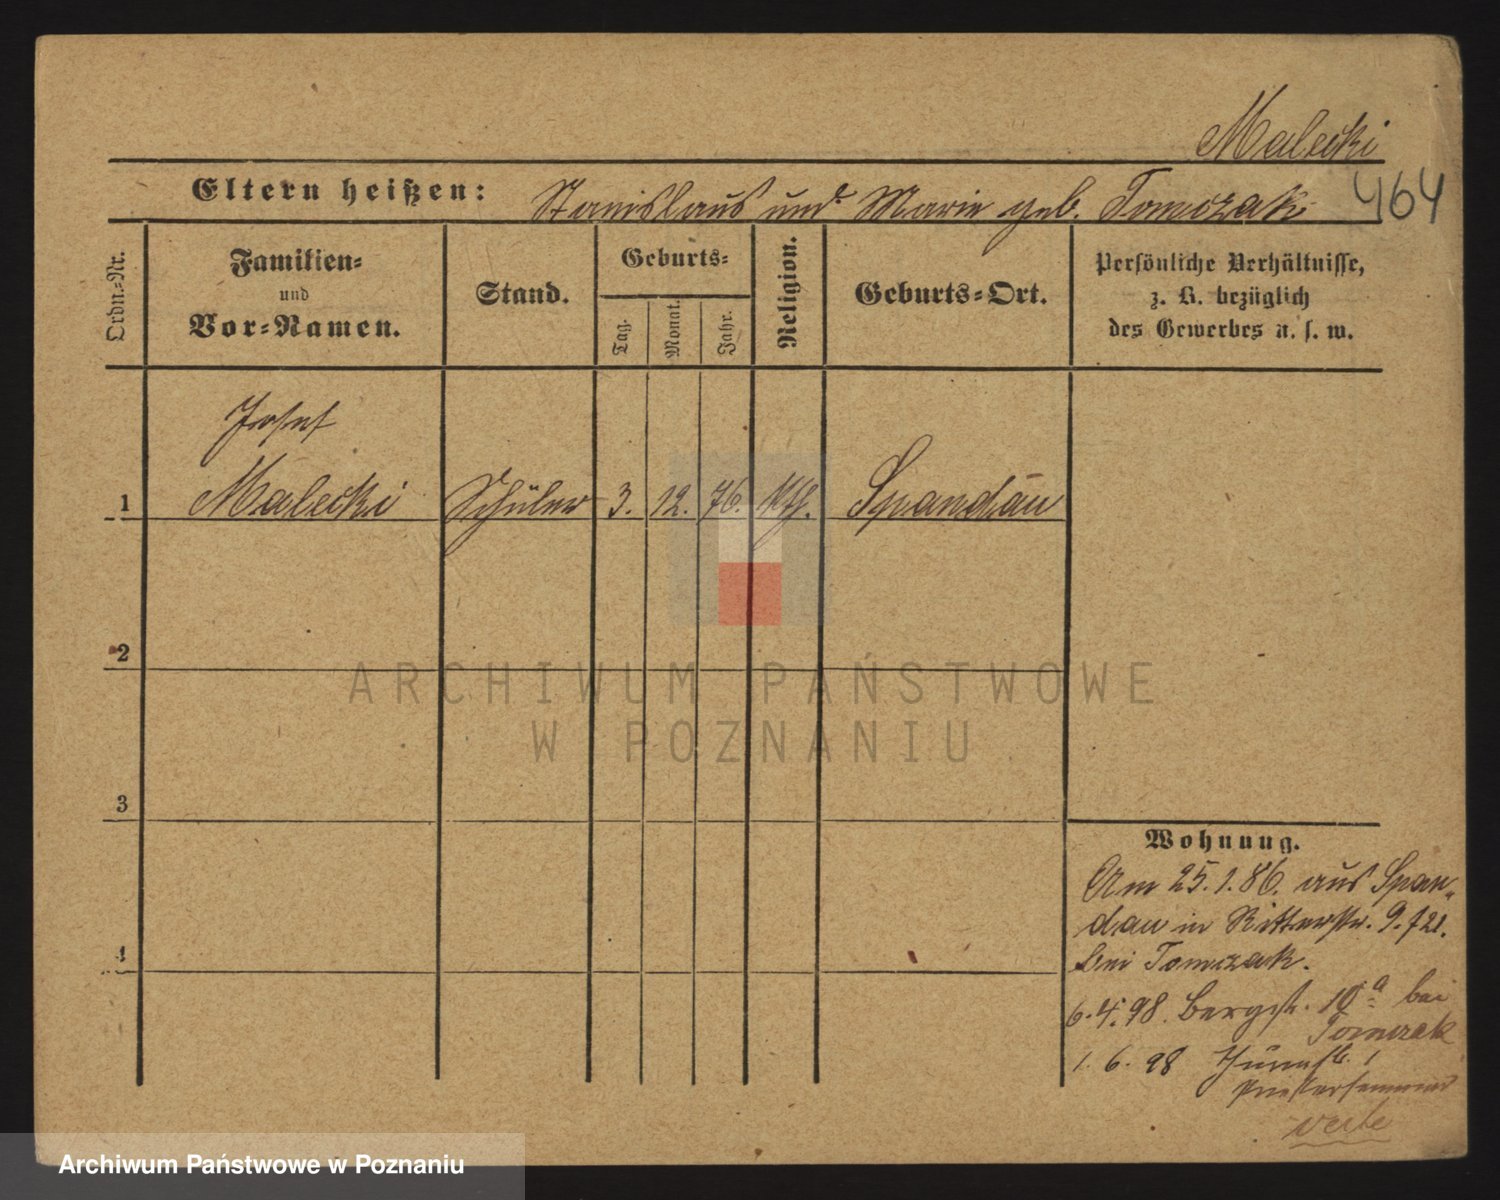 Malecki
464
Eltern heißen: Stanislaus und Marie geb. Tomczak
Ordn.-Nr.
Familien-
und
Vor-Namen.
Stand.
Geburts-
Tag.
Monat.
Jahr.
Religion.
Geburts-Ort.
Persönliche Verhältnisse,
z. B. bezüglich
des Gewerbes u. s. w.
Josef
1 Malecki Schüler 3. 12. 76. kth. Spandau
2
3
4
Wohnung.
Am 25.1.86. aus Span-
dau in Ritterstr. 9.
bei Tomczak.
6.4.98. Bergstr. 10a bei
Tomczak
1.6.98 1
Priesterseminar
verte
ARCHIWUM PAŃSTWOWE
W POZNANIU
Archiwum Państwowe w Poznaniu